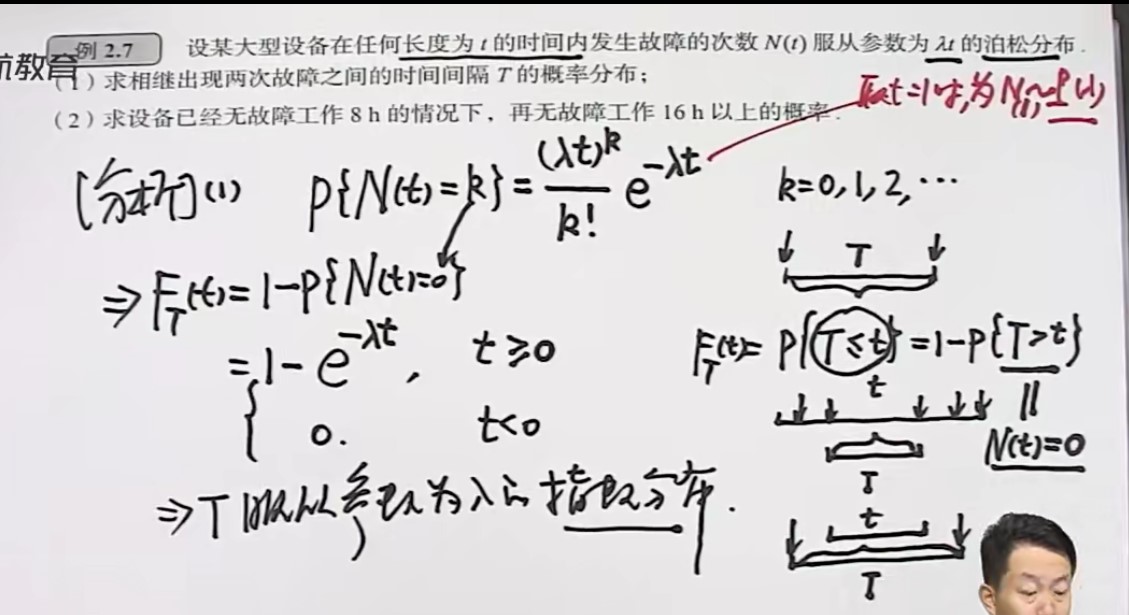 例 2.7 设某大型设备在任何长度为 t 的时间内发生故障的次数 N(t) 服从参数为 λt 的泊松分布.
航教育
(1) 求相继出现两次故障之间的时间间隔 T 的概率分布;
取t=1时,为N(1)~P(λ)
(2) 求设备已经无故障工作 8 h 的情况下,再无故障工作 16 h 以上的概率.
[分析](1) P{N(t)=k}=(λt)^k/k! e^{-λt} k=0,1,2,…
T
⇒F_T(t)=1-P{N(t)=0}
=1-e^{-λt}, t≥0
F_T(t)=P{T≤t}=1-P{T>t}
0. t<0
t
||
N(t)=0
T
⇒T服从参数为λ的指数分布.
t
T